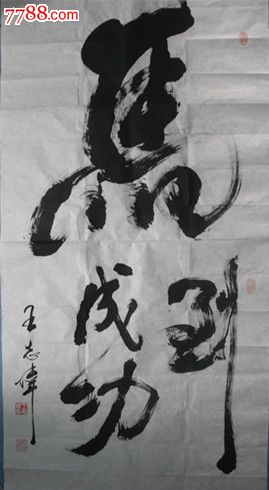 7788.com
馬到
成功
王志偉